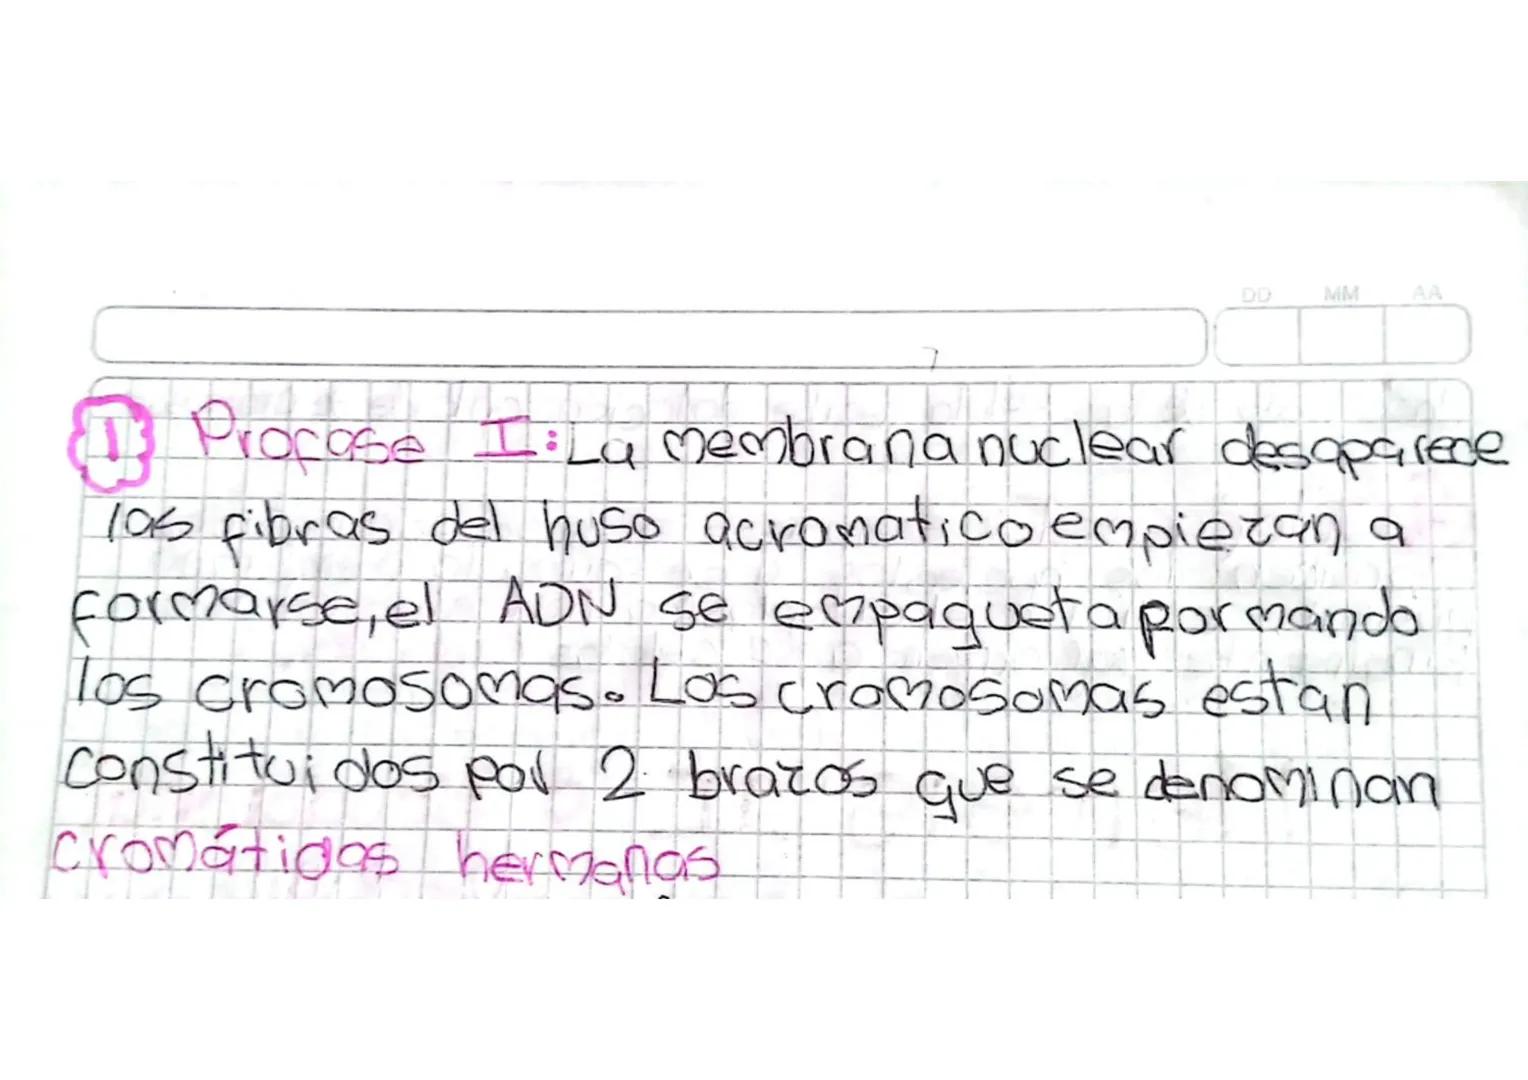 DD MM AA
1 Profase I: La membrana nuclear desaparece
las fibras del huso acromatico empiezan a
formarse, el ADN se empaqueta pormando
los cromosomas. Los cromosomas estan
constituidos por 2 brazos que se denominan
cromátidas hermanas